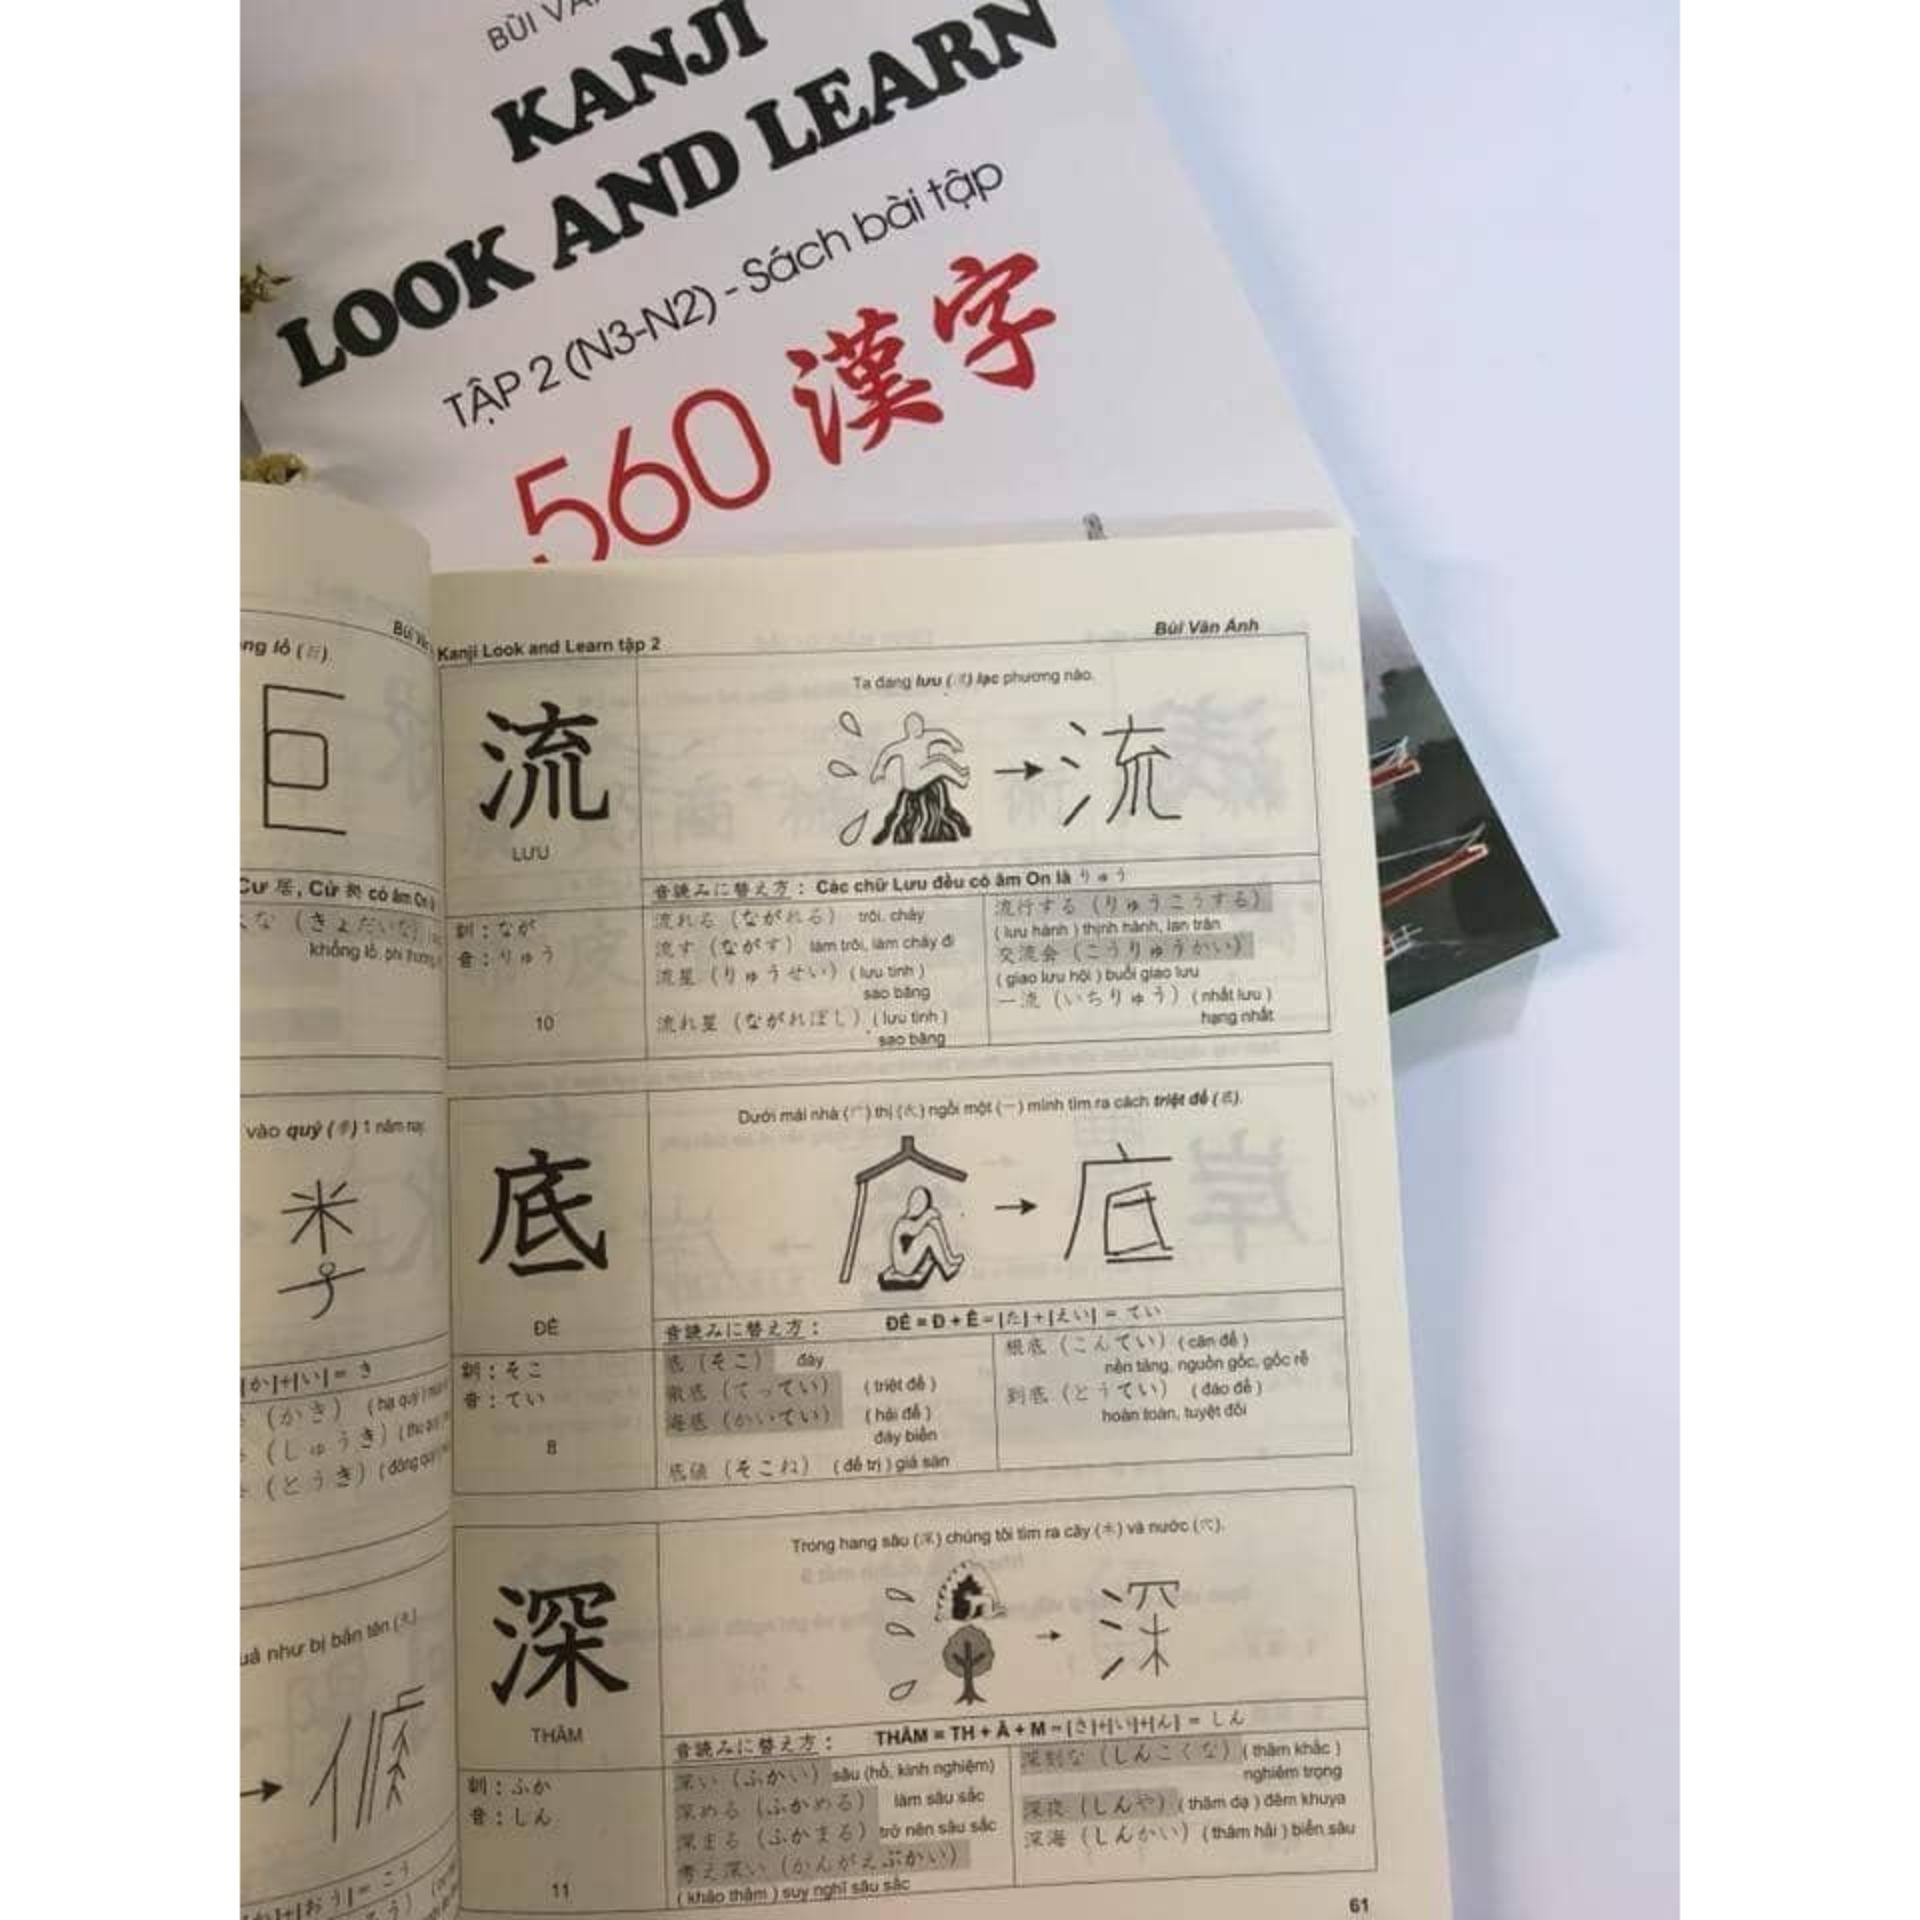 BÙI VÂ
KANJI
LOOK AND LEARN
TẬP 2 (N3-N2) - Sách bài tập
560 漢字
ng lồ (巨).
Cư 居, Cử 拠 có âm On là
な (きょだいな)
khổng lồ, phi thường,
vào quý (季) 1 năm nay.
[か]+[い]= き
(かき) (hạ quý)
(しゅうき) (thu quý
(とうき) (đông quý)
uả như bị bắn tên
→
[か]+[おう]= こう
Kanji Look and Learn tập 2
Bùi Vân Anh
流
LƯU
Ta đang lưu (流) lạc phương nào.
→ 流
音読みに替え方: Các chữ Lưu đều có âm On là りゅう
訓:なが
音:りゅう
10
流れる (ながれる) trôi, chảy
流す (ながす) làm trôi, làm chảy đi
流星 (りゅうせい) (lưu tinh)
sao băng
流れ星 (ながれぼし) (lưu tinh)
sao băng
流行する (りゅうこうする)
(lưu hành) thịnh hành, lan tràn
交流会 (こうりゅうかい)
(giao lưu hội) buổi giao lưu
一流 (いちりゅう) (nhất lưu)
hạng nhất
底
ĐÊ
Dưới mái nhà (广) thị (氏) ngồi một (一) mình tìm ra cách triệt để (底).
→ 底
音読みに替え方: ĐÊ = Đ + Ê = [た]+[えい] = てい
訓:そこ
音:てい
8
底 (そこ) đáy
徹底 (てってい) (triệt để)
海底 (かいてい) (hải để)
đáy biển
底値 (そこね) (để trị) giá sàn
根底 (こんてい) (căn để)
nền tảng, nguồn gốc, gốc rễ
到底 (とうてい) (đáo để)
hoàn toàn, tuyệt đối
深
THÂM
Trong hang sâu (深) chúng tôi tìm ra cây (木) và nước
→ 深
音読みに替え方: THÂM = TH + Â + M = [さ]+[い]+[ん] = しん
訓:ふか
音:しん
11
深い (ふかい) sâu (hồ, kinh nghiệm)
深める (ふかめる) làm sâu sắc
深まる (ふかまる) trở nên sâu sắc
考え深い (かんがえぶかい)
(khảo thâm) suy nghĩ sâu sắc
深刻な (しんこくな) (thâm khắc)
nghiêm trọng
深夜 (しんや) (thâm dạ) đêm khuya
深海 (しんかい) (thâm hải) biển sâu
61